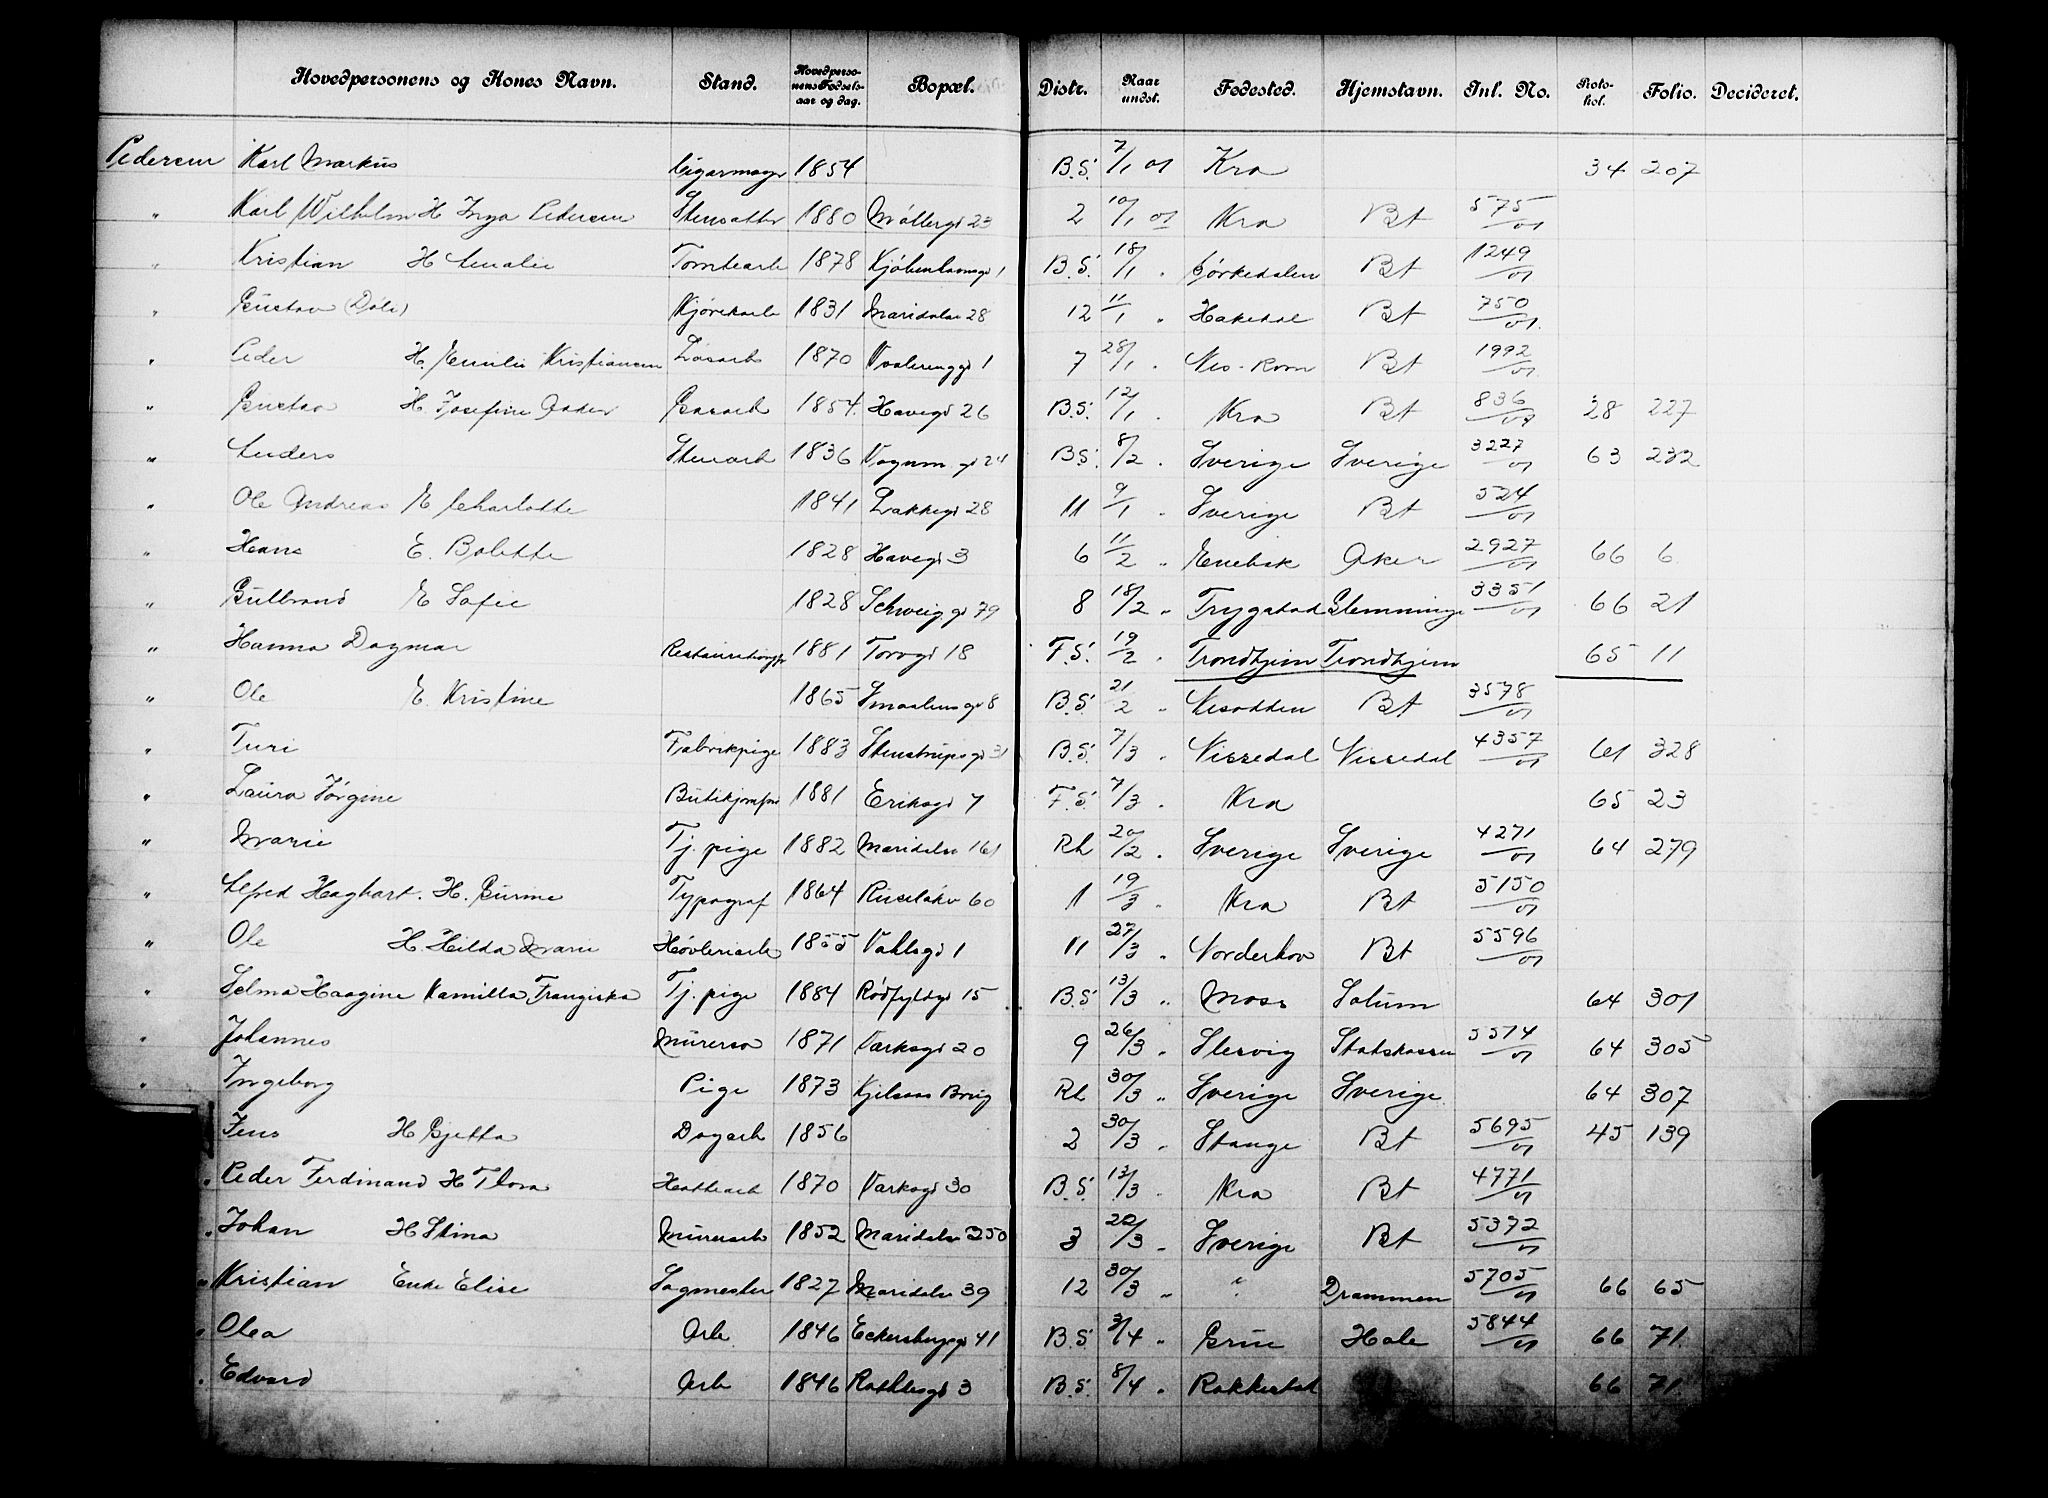 Hovedpersonens og Kones Navn. Stand. Hovedperso-nens Fødsels-aar og dag. Bopæl. Distr. Naar undst. Fødested. Hjemstavn. Inl. No. Proto-kol. Folio. Decideret.
Pedersen Karl Markus Cigarmager 1854 B.S. 7/1 01 Kra 34 207
" Karl Wilhelm H Inga Pedersen 1880 Møllergd 23 2 10/1 01 Kra Bt 575/01
" Kristian H Amalie Tomtearb 1878 Kjøbenhavnsgd 1 B.S. 18/1 " Sørkedalen Bt 1249/01
" Gustav (Døli) Kjørekarl 1831 Maridalsv 28 12 11/1 " Hakedal Bt 750/01
" Peder H. Emilie Kristiansen Løsarb 1870 Vaalerenggd 1 7 28/1 " Nes-Rom Bt 1992/01
" Gustav H Josefine Gasarb 1854 Havegd 26 B.S. 12/1 " Kra Bt 836/01 28 227
" Anders Stenarb 1836 Vognm gd 24 B.S. 8/2 " Sverige Sverige 3227/01 63 232
" Ole Andreas E Charlotte 1841 Lakkegd 28 11 9/1 " Sverige Bt 524/01
" Hans E. Bolette 1828 Havegd 3 6 11/2 " Enebak Aker 2927/01 66 6
" Gulbrand E Sofie 1828 Schweigg gd 79 8 18/2 " Trygstad Glemminge 3351/01 66 21
" Hanna Dagmar 1881 Torvgd 18 F.S. 19/2 " Trondhjem Trondhjem 65 11
" Ole E. Kristine 1865 Smaalensgd 8 B.S. 21/2 " Nesodden Bt 3578/01
" Turi Fabrikpige 1883 Stenstrupsgd 31 B.S. 7/3 " Nissedal Nissedal 4357/01 61 328
" Laura Jørgine Butikjomfru 1881 Eriksgd 7 F.S. 7/3 " Kra 65 23
" Marie Tj. pige 1882 Maridalsv 161 Rh 20/2 " Sverige Sverige 4271/01 64 279
" Alfred Hagbart. H. Gurine Typograf 1864 Ruseløkv 60 1 19/3 " Kra Bt 5150/01
" Ole H. Hilda Marie Høvleriarb 1855 Vahlsgd 1 11 27/3 " Norderhov Bt 5596/01
" Selma Haagine Kamilla Frangiska Tj. pige 1884 Rødfyldgd 15 B.S. 13/3 " Moss Solum 64 301
" Johannes Murersv 1871 Varksgd 20 9 26/3 " Slesvig Statskassen 5514/01 64 305
" Ingeborg Pige 1873 Kjelsaas Brug Rh 30/3 " Sverige Sverige 64 307
" Jens H Gjetta Dagarb 1856 2 30/3 " Stange Bt 5695/01 45 139
" Peder Ferdinand H Flora 1870 Varksgd 30 B.S. 13/3 " Kra Bt 4771/01
" Johan H Stina Murerarb 1852 Maridalsv 250 3 22/3 " Sverige Bt 5372/01
" Kristian Enke Elise Sagmester 1827 Maridalsv 39 12 30/3 " " Drammen 5705/01 66 65
" Olea Arb 1846 Eckersbergsgd 41 B.S. 3/4 " Grue Hole 5844/01 66 71
" Edvard Arb 1846 Rathkesgd 3 B.S. 8/4 " Rakkestad 66 71